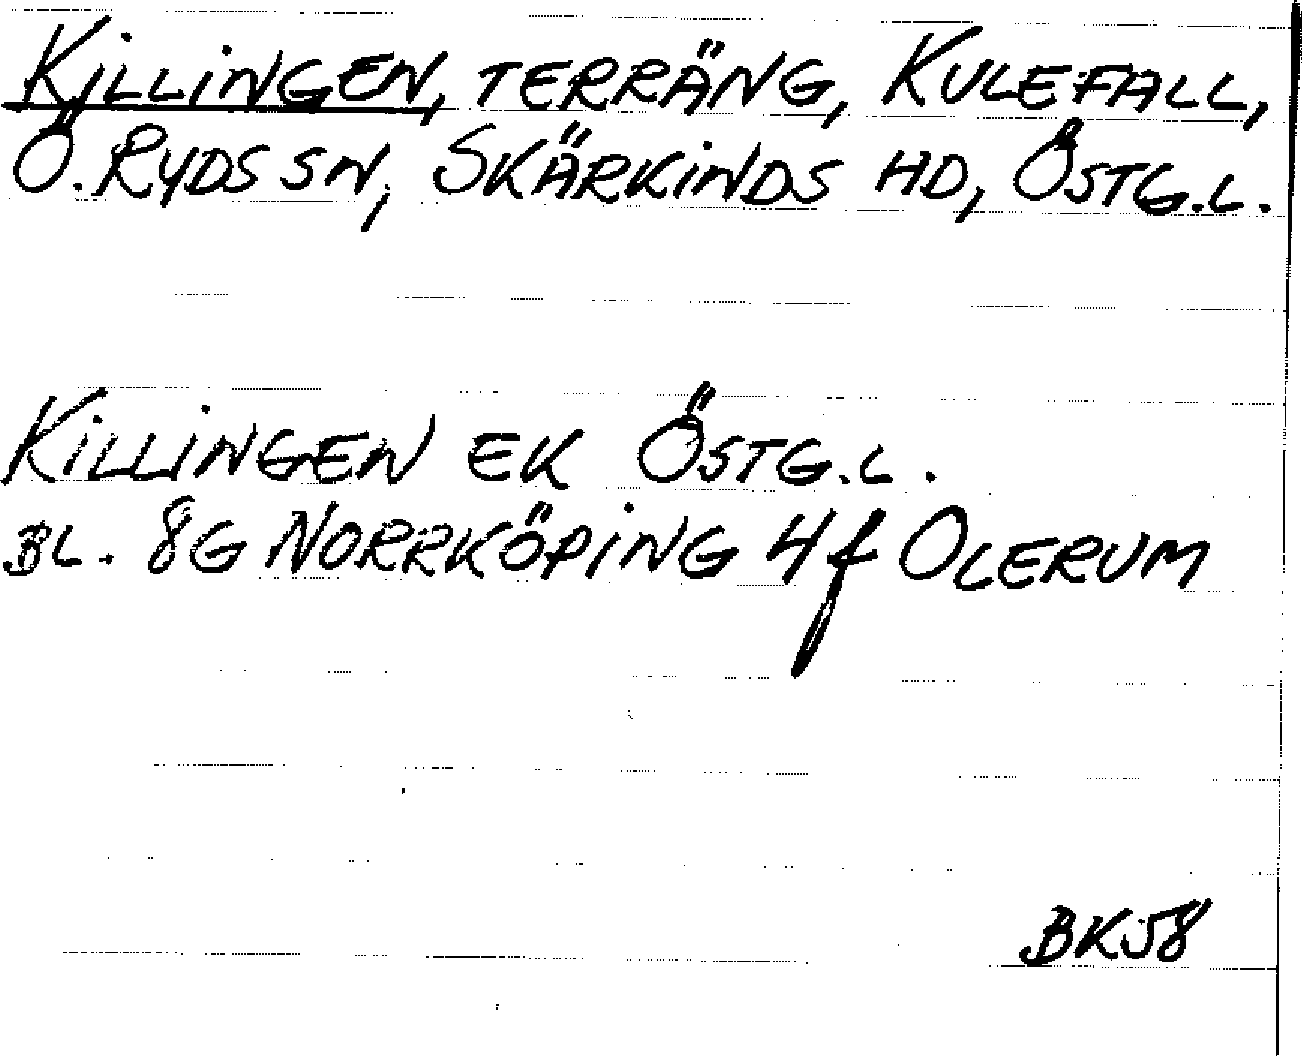 KILLINGEN, TERRÄNG, KULEFALL,
Ö. RYDS SN, SKÄRKINDS HD, ÖSTG.L.
KILLINGEN EK ÖSTG.L.
BL. 8G NORRKÖPING 4f OLERUM
BK58